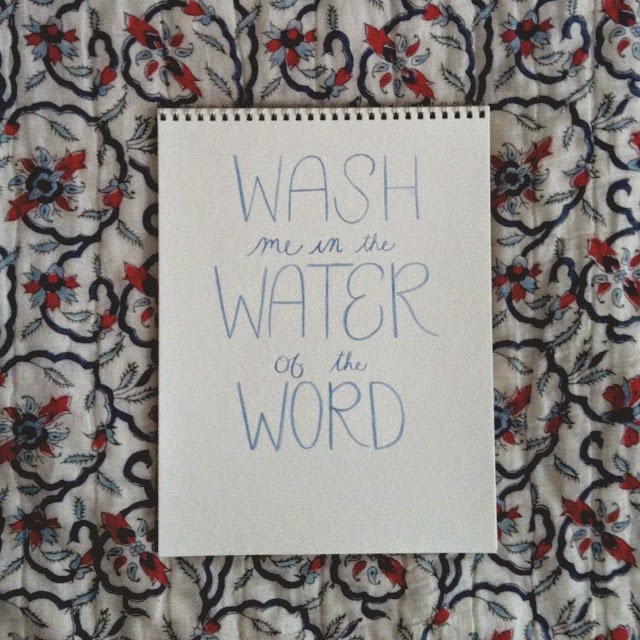 WASH
me in the
WATER
of the
WORD